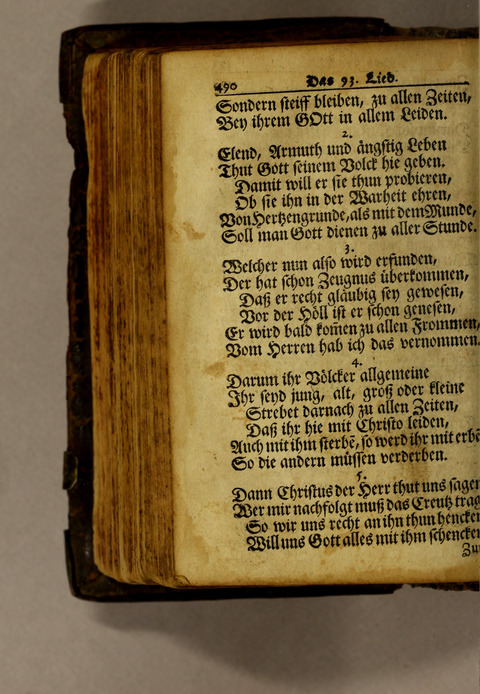 490 Das 93. Lied.
Sondern steiff bleiben, zu allen Zeiten,
Bey ihrem GOtt in allem Leiden.
2.
Elend, Armuth und ängstig Leben
Thut Gott seinem Volck hie geben.
Damit will er sie thun probieren,
Ob sie ihn in der Warheit ehren,
Von Hertzengrunde, als mit dem Munde,
Soll man Gott dienen zu aller Stunde.
3.
Welcher nun also wird erfunden,
Der hat schon Zeugnus überkommen,
Daß er recht gläubig sey gewesen,
Vor der Höll ist er schon genesen,
Er wird bald kom̃en zu allen Frommen,
Vom Herren hab ich das vernommen.
4.
Darum ihr Völcker allgemeine
Ihr seyd jung, alt, groß oder kleine
Strebet darnach zu allen Zeiten,
Daß ihr hie mit Christo leiden,
Auch mit ihm sterbē, so werd ihr mit erbē
So die andern müssen verderben.
5.
Dann Christus der Herr thut uns sagen
Wer mir nachfolgt muß das Creutz trag
So wir uns recht an ihn thun hencken
Will uns Gott alles mit ihm schencken
Zu